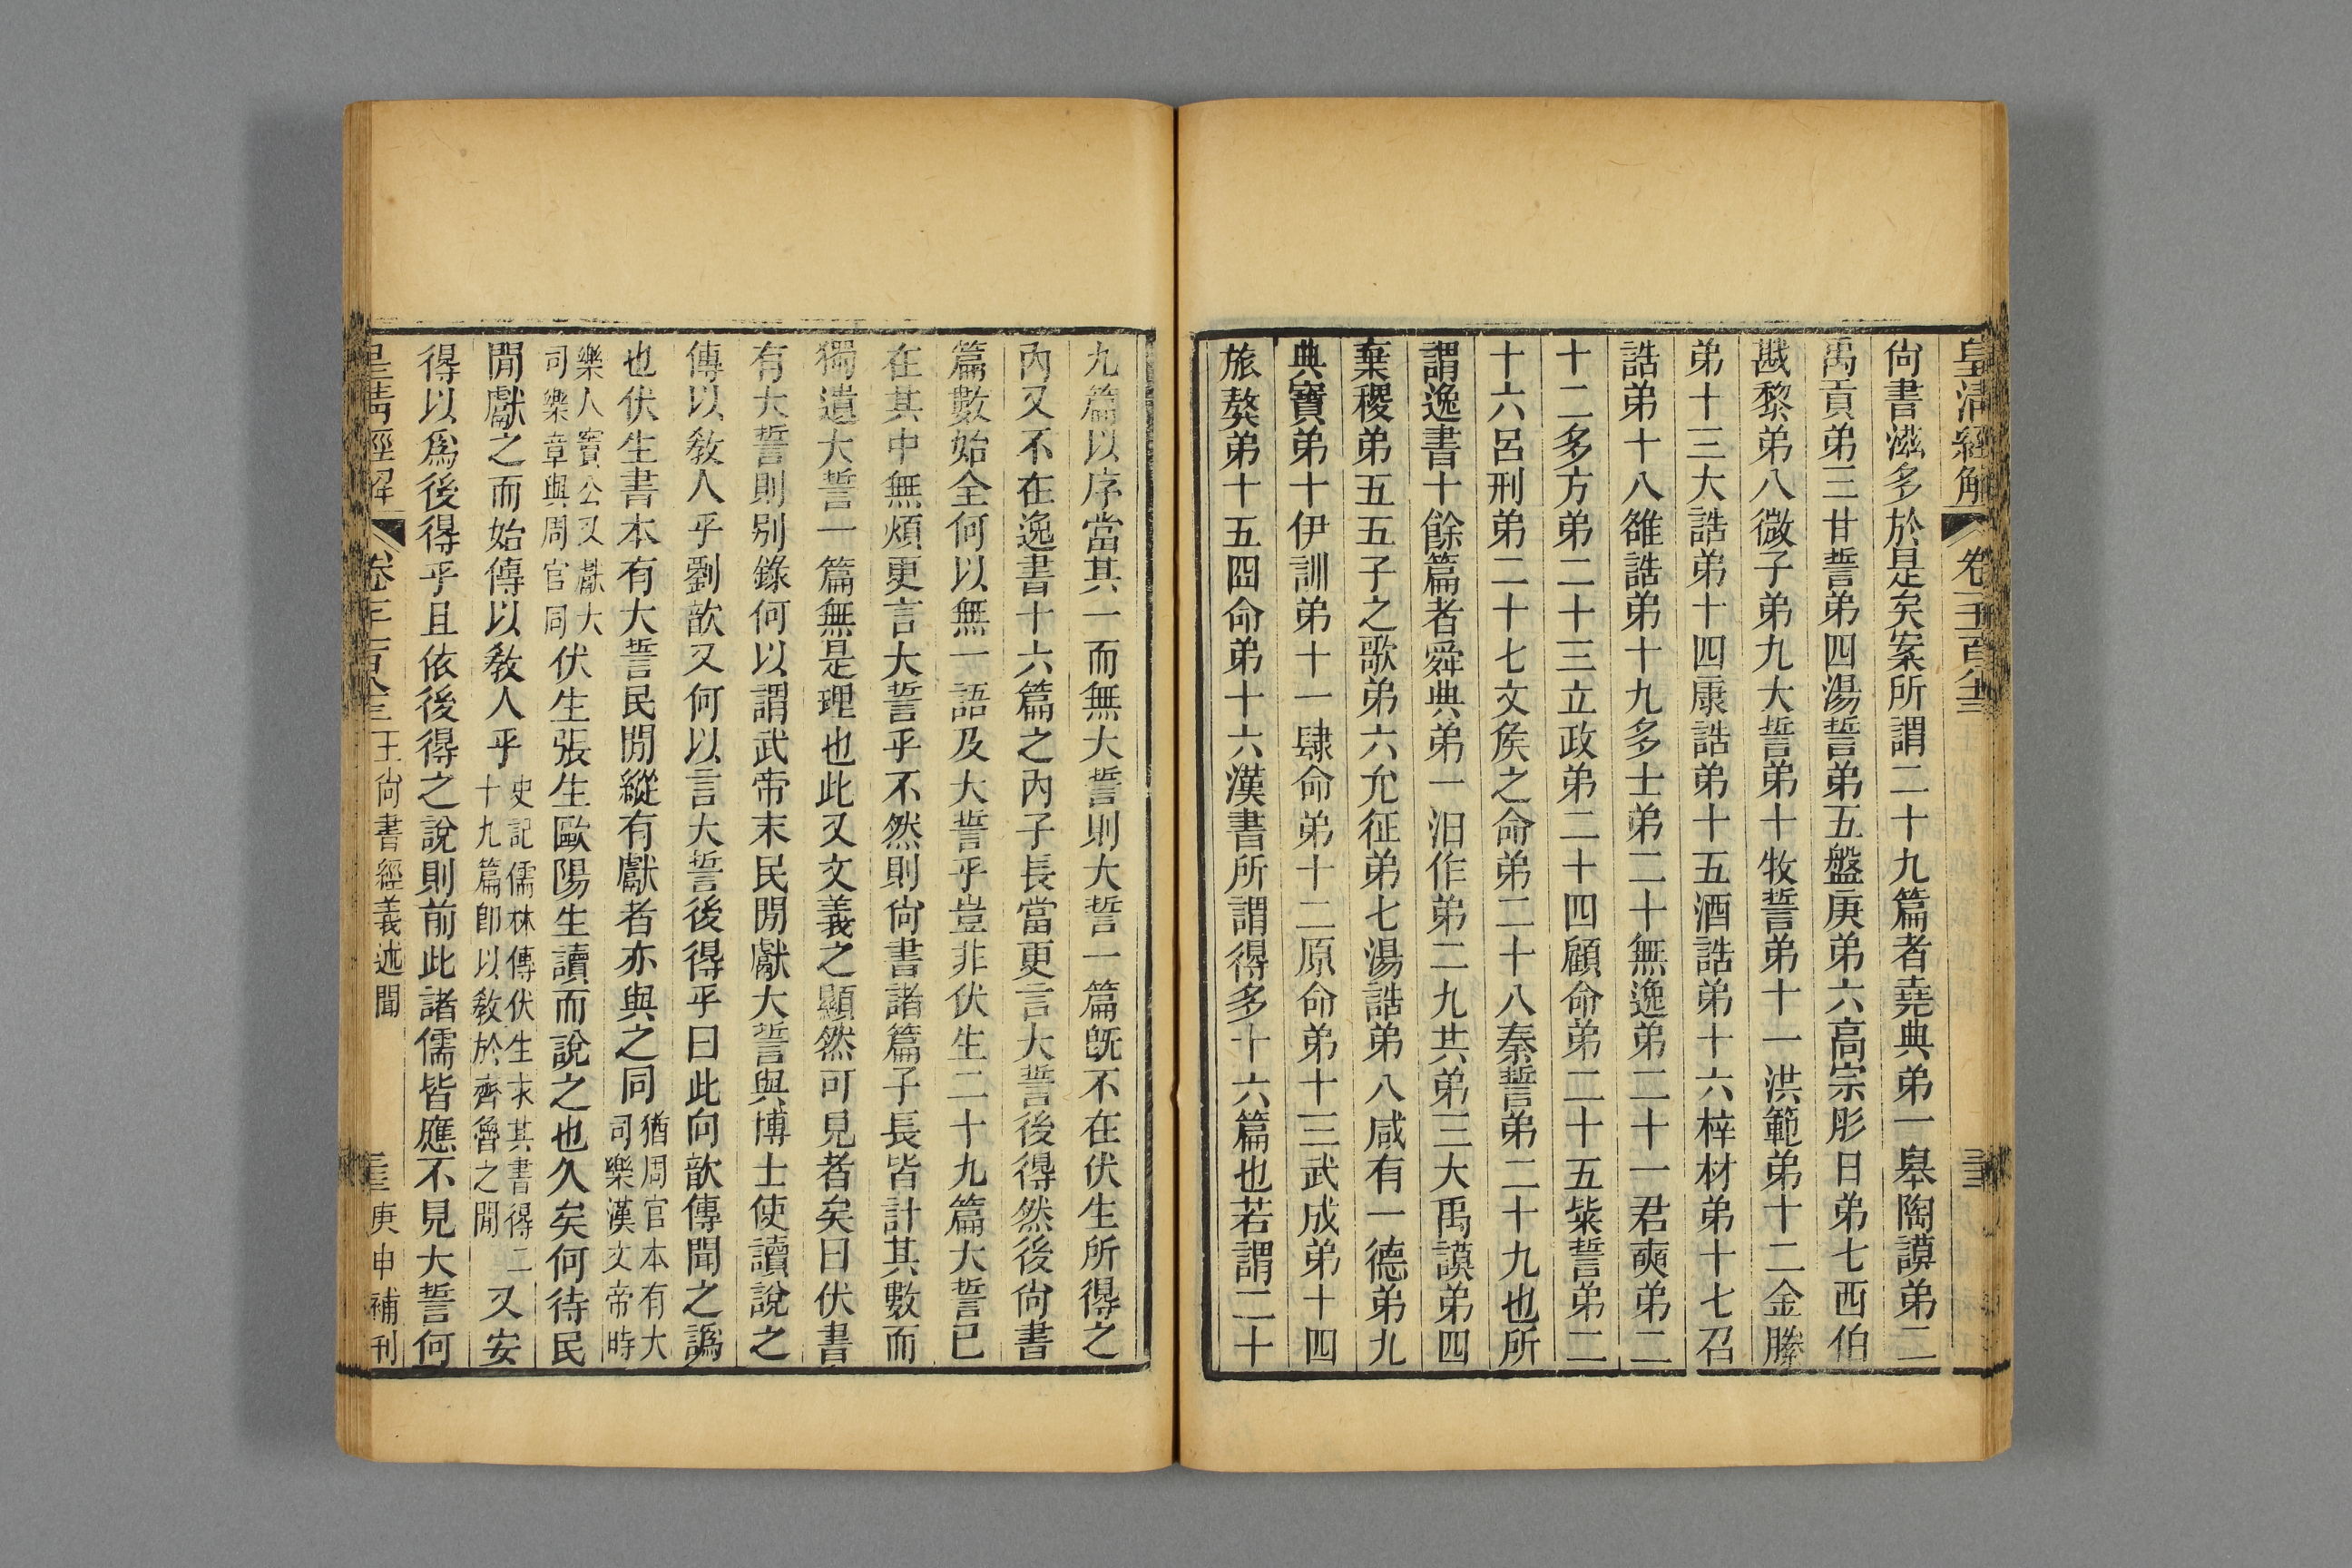 皇清經解 卷千一百八十三
尙書滋多於是矣案所謂二十九篇者堯典弟一皋陶謨弟二
禹貢弟三甘誓弟四湯誓弟五盤庚弟六高宗肜日弟七西伯
戡黎弟八微子弟九大誓弟十牧誓弟十一洪範弟十二金縢
弟十三大誥弟十四康誥弟十五酒誥弟十六梓材弟十七召
誥弟十八雒誥弟十九多士弟二十無逸弟二十一君奭弟二
十二多方弟二十三立政弟二十四顧命弟二十五粊誓弟二
十六呂刑弟二十七文矦之命弟二十八秦誓弟二十九也所
謂逸書十餘篇者舜典弟一汨作弟二九共弟三大禹謨弟四
棄稷弟五五子之歌弟六允征弟七湯誥弟八咸有一德弟九
典寶弟十伊訓弟十一肆命弟十二原命弟十三武成弟十四
旅獒弟十五冏命弟十六漢書所謂得多十六篇也若謂二十
九篇以序當其一而無大誓則大誓一篇旣不在伏生所得之
內又不在逸書十六篇之內子長當更言大誓後得然後尙書
篇數始全何以無一語及大誓乎豈非伏生二十九篇大誓已
在其中無煩更言大誓乎不然則尙書諸篇子長皆計其數而
獨遺大誓一篇無是理也此又文義之顯然可見者矣曰伏書
有大誓則别錄何以謂武帝末民閒獻大誓與博士使讀說之
傳以敎人乎劉歆又何以言大誓後得乎曰此向歆傳聞之譌
也伏生書本有大誓民閒縱有獻者亦與之同猶周官本有大
司樂漢文帝時
樂人竇公又獻大
司樂章與周官同伏生張生歐陽生讀而說之也久矣何待民
閒獻之而始傳以敎人乎史記儒林傳伏生求其書得二
十九篇卽以敎於齊魯之閒又安
得以爲後得乎且依後得之說則前此諸儒皆應不見大誓何
皇清經解 卷千一百八十三 王尙書經義述聞 庚申補刊